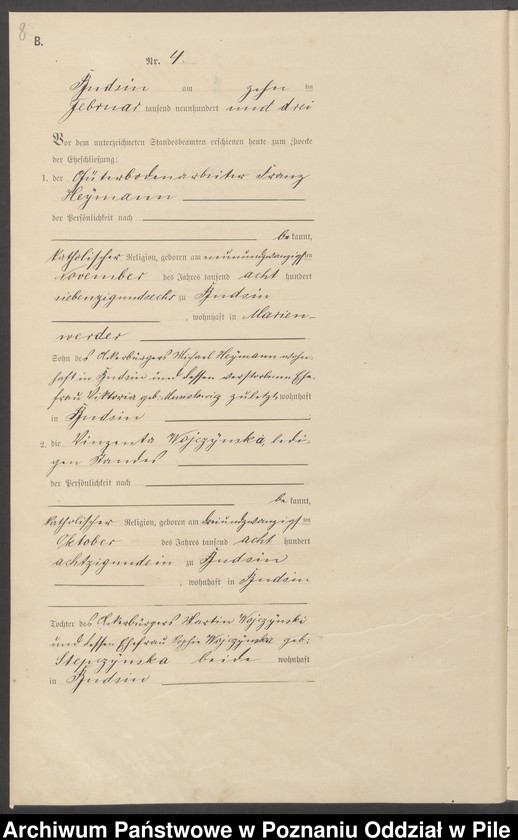 8
B.
Nr. 4.
Budsin am zehn ten
Februar tausend neunhundert und drei
Vor dem unterzeichneten Standesbeamten erschienen heute zum Zwecke
der Eheschließung:
1. der Güterbodenarbeiter Franz
Heymann
der Persönlichkeit nach
be kannt,
katholischer Religion, geboren am neunundzwanzigsten
November des Jahres tausend acht hundert
siebenzigundsechs zu Budsin
, wohnhaft in Marien-
werder
Sohn des Ackerbürgers Michael Heymann wohn-
haft in Budsin und dessen verstorbenen Ehe-
frau Viktoria geb. zuletzt wohnhaft
in Budsin
2. die Vinzenta Wojczynska, ledi-
gen Standes
der Persönlichkeit nach
be kannt,
katholischer Religion, geboren am dreiundzwanzigsten
Oktober des Jahres tausend acht hundert
achtzigundein zu Budsin
, wohnhaft in Budsin
Tochter des Ackerbürgers Martin Wojczynski
und dessen Ehefrau Sophie Wojczynska geb.
Stepczynska beide wohnhaft
in Budsin
Archiwum Państwowe w Poznaniu Oddział w Pile